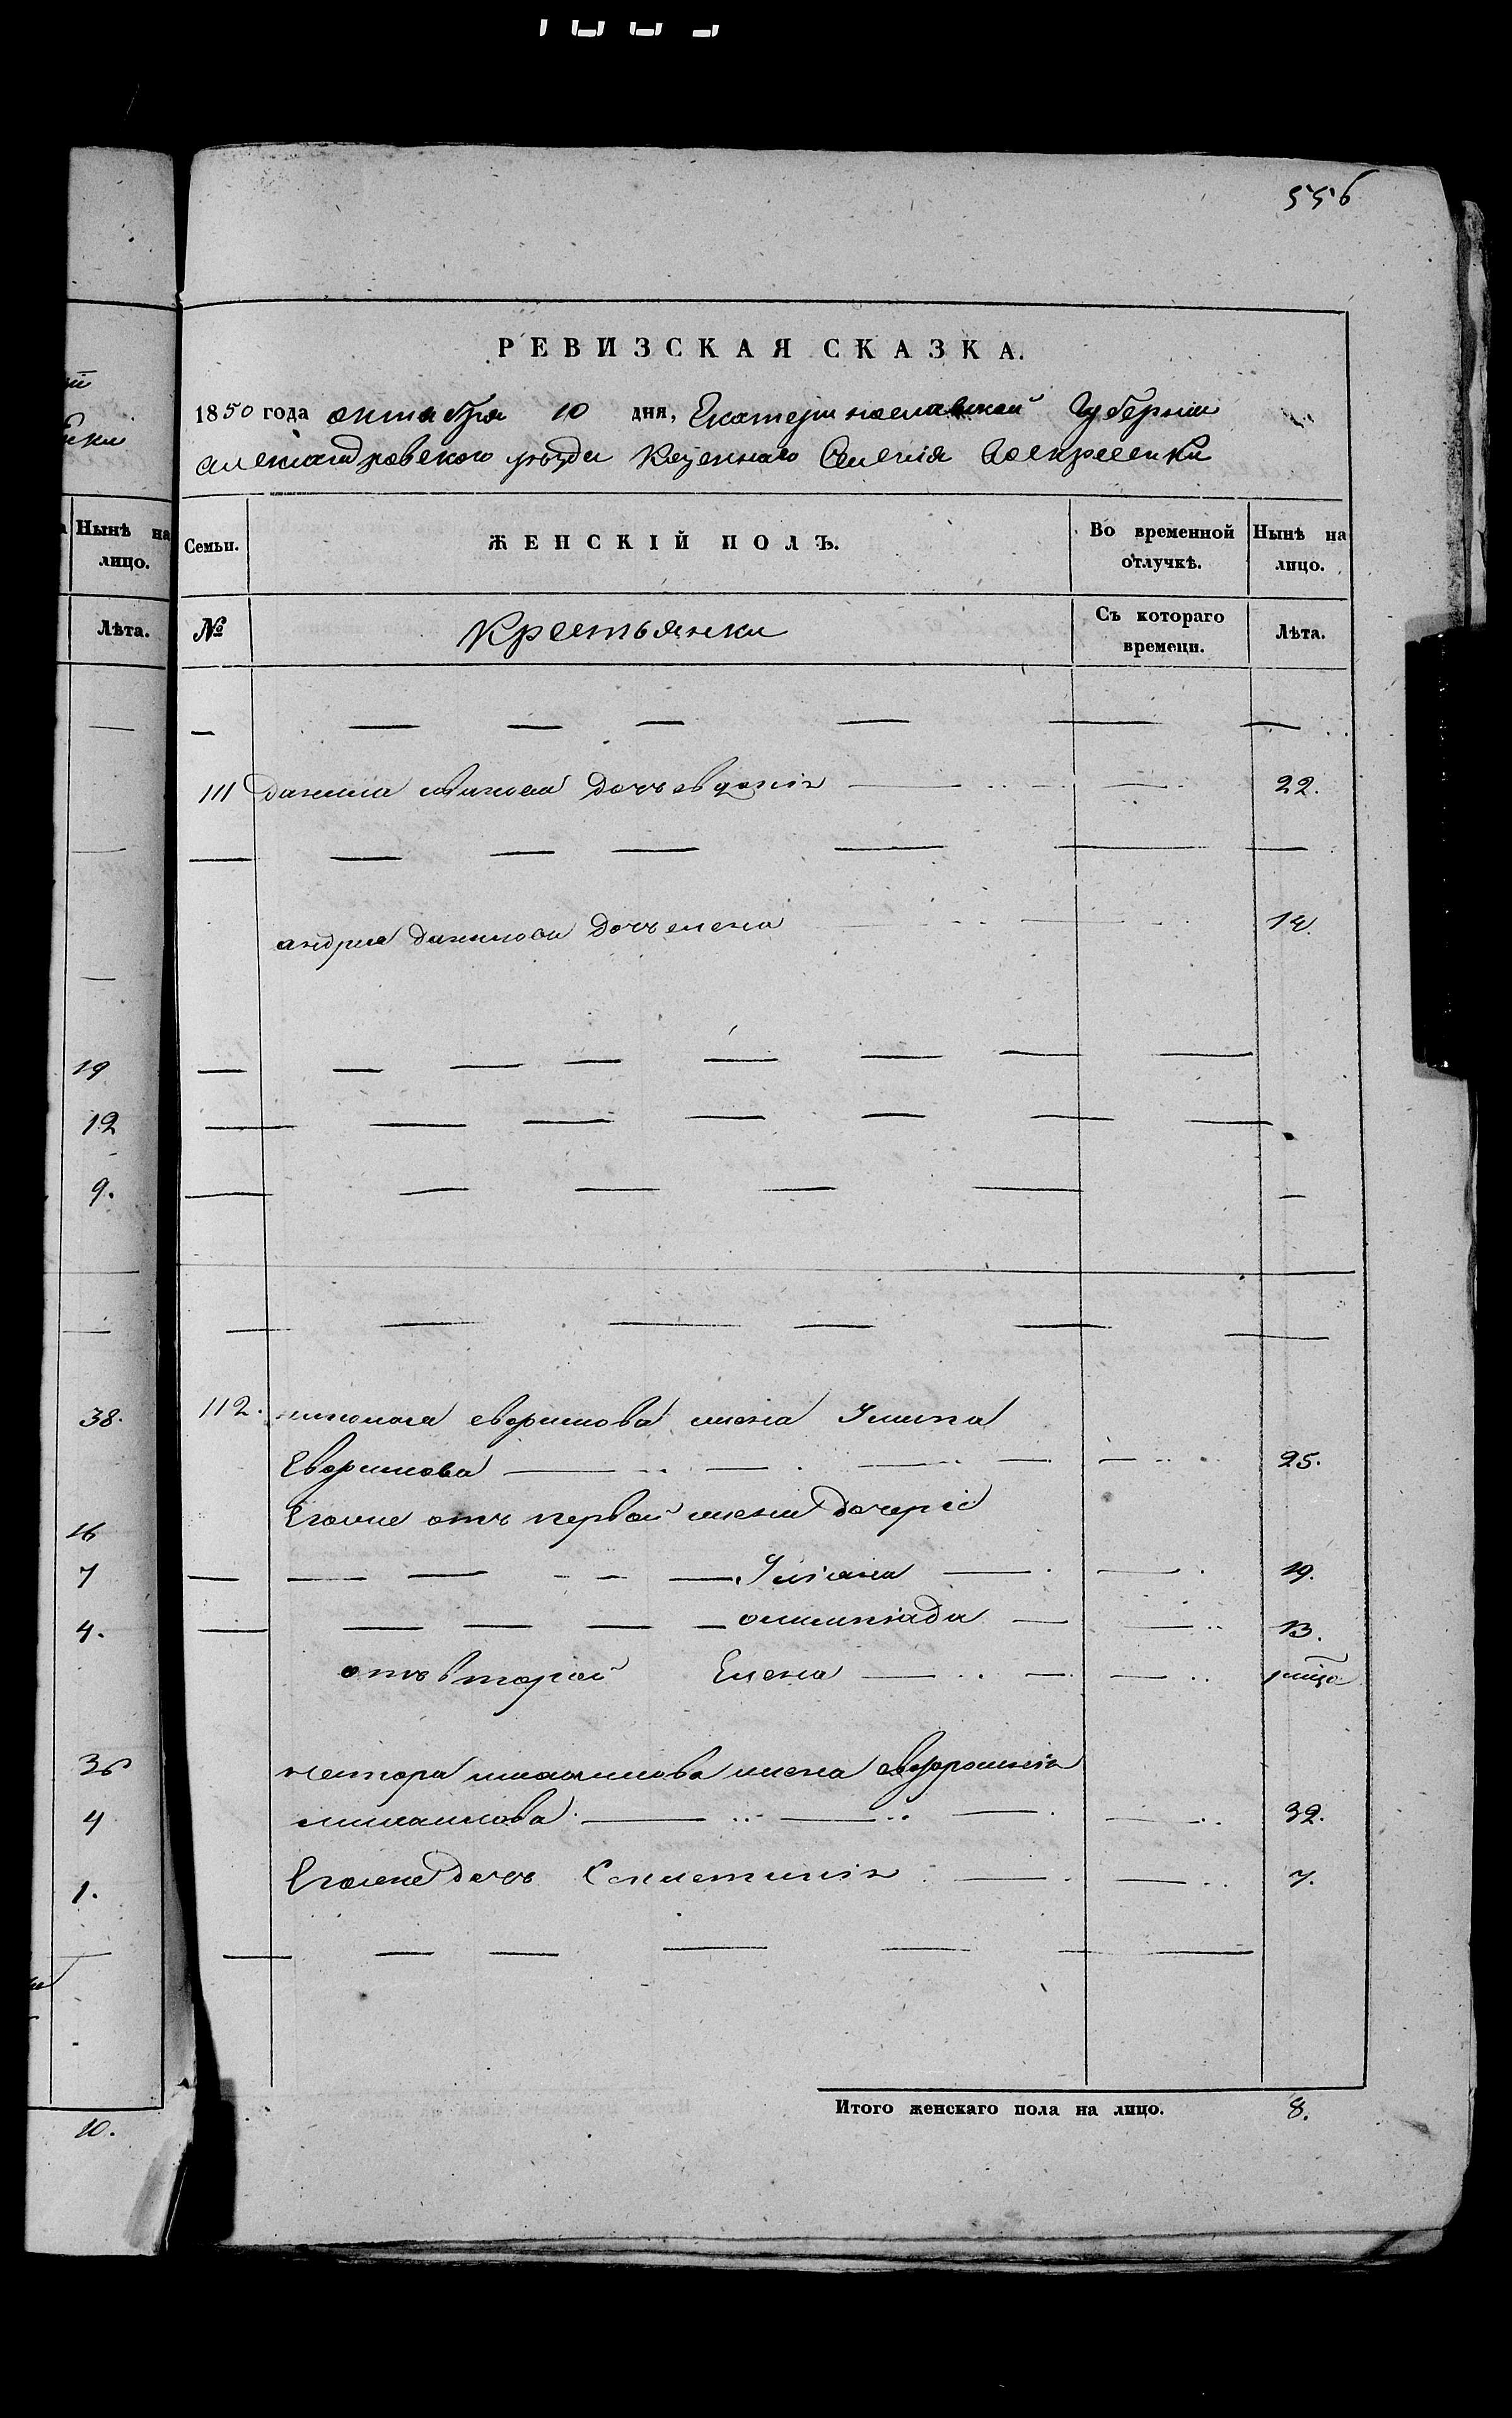 556
РЕВИЗСКАЯ СКАЗКА.
1850 года октября 10 дня, Екатеринославской Губернии
александровского уезда Казенного Селения Воскресенки
Нынѣ на лицо.
Лѣта.
19
12
9.
38.
16
7
4.
36
4
1.
10.
Семьи. ЖЕНСКІЙ ПОЛЪ. Во временной отлучкѣ. Нынѣ на лицо.
№ Крестьянки Съ котораго времени. Лѣта.
111 данила дочь евдокія 22.
андрея данилова дочь елена 14.
112. николая ефимова жена
Ефимова 25.
Еговые отъ первой жены дочери
Уліяна 19.
олимпіада 13.
отъ второй Елена
нестора михаилова жена евфросинія
михаилова 32.
Еговые дочь Секлетинія 7.
Итого женскаго пола на лицо. 8.